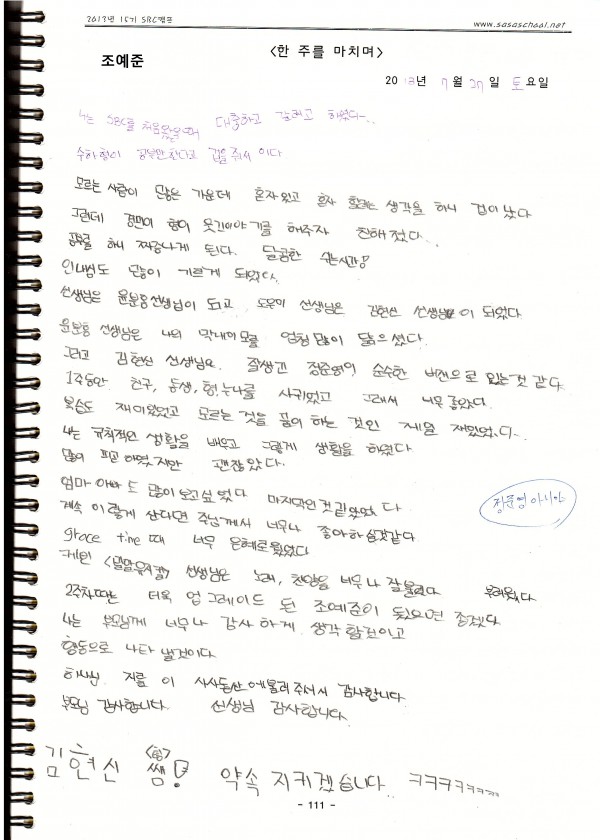 2013년 15기 SRC캠프 www.sasaschool.net
<한 주를 마치며>
조예준
2013년 7월 27일 토요일
나는 SRC를 처음 왔을때 대충하고 갈려고 하였다..
수하형이 공부만 한다고 겁을 줘서 이다
모르는 사람이 많은 가운데 혼자 있고 혼자 할려는 생각을 하니 겁이 났다
그런데 경민이 형이 웃긴이야기를 해주자 친해졌다..
공부를 하니 짜증나게 된다. 달콤한 쉬는시간!
인내심도 많이 기르게 되었다.
선생님은 윤분홍선생님이 되고 도우미 선생님은 김현신 선생님이 되었다
윤분홍 선생님은 나의 막내이모를 엄청 많이 닮으셨다.
그리고 김현신 선생님은 잘생긴 정준영이 순수한 버전으로 있는것 같다.
1주동안 친구, 동생, 형, 누나를 사귀었고 그래서 너무 좋았다.
복습도 재미있었고 모르는 것을 풀이 하는 것인 제일 재밌었다..
나는 규칙적인 생활을 배우고 그렇게 생활을 하였다
많이 피곤하였지만 괜찮았다.
엄마 아빠도 많이 보고싶었다 마지막인것 같았었다
계속 이렇게 산다면 주님께서 너무나 좋아하실것같다
grace time때 너무 은혜로웠었다
케빈 선생님은 노래, 찬양을 너무나 잘불러다 부러웠다
2주차때는 더욱 업그레이드 된 조예준이 됬으면 좋겠다
나는 부모님께 너무나 감사하게 생각할것이고
행동으로 나타낼것이다
하나님 저를 이 사사동산에 불러주셔서 감사합니다
부모님 감사합니다. 선생님 감사합니다.
정준영 아시아
김현신 <형> 쌤! 약속 지키겠습니다.. ㅋㅋㅋㅋㅋㅋㅋ
- 111 -